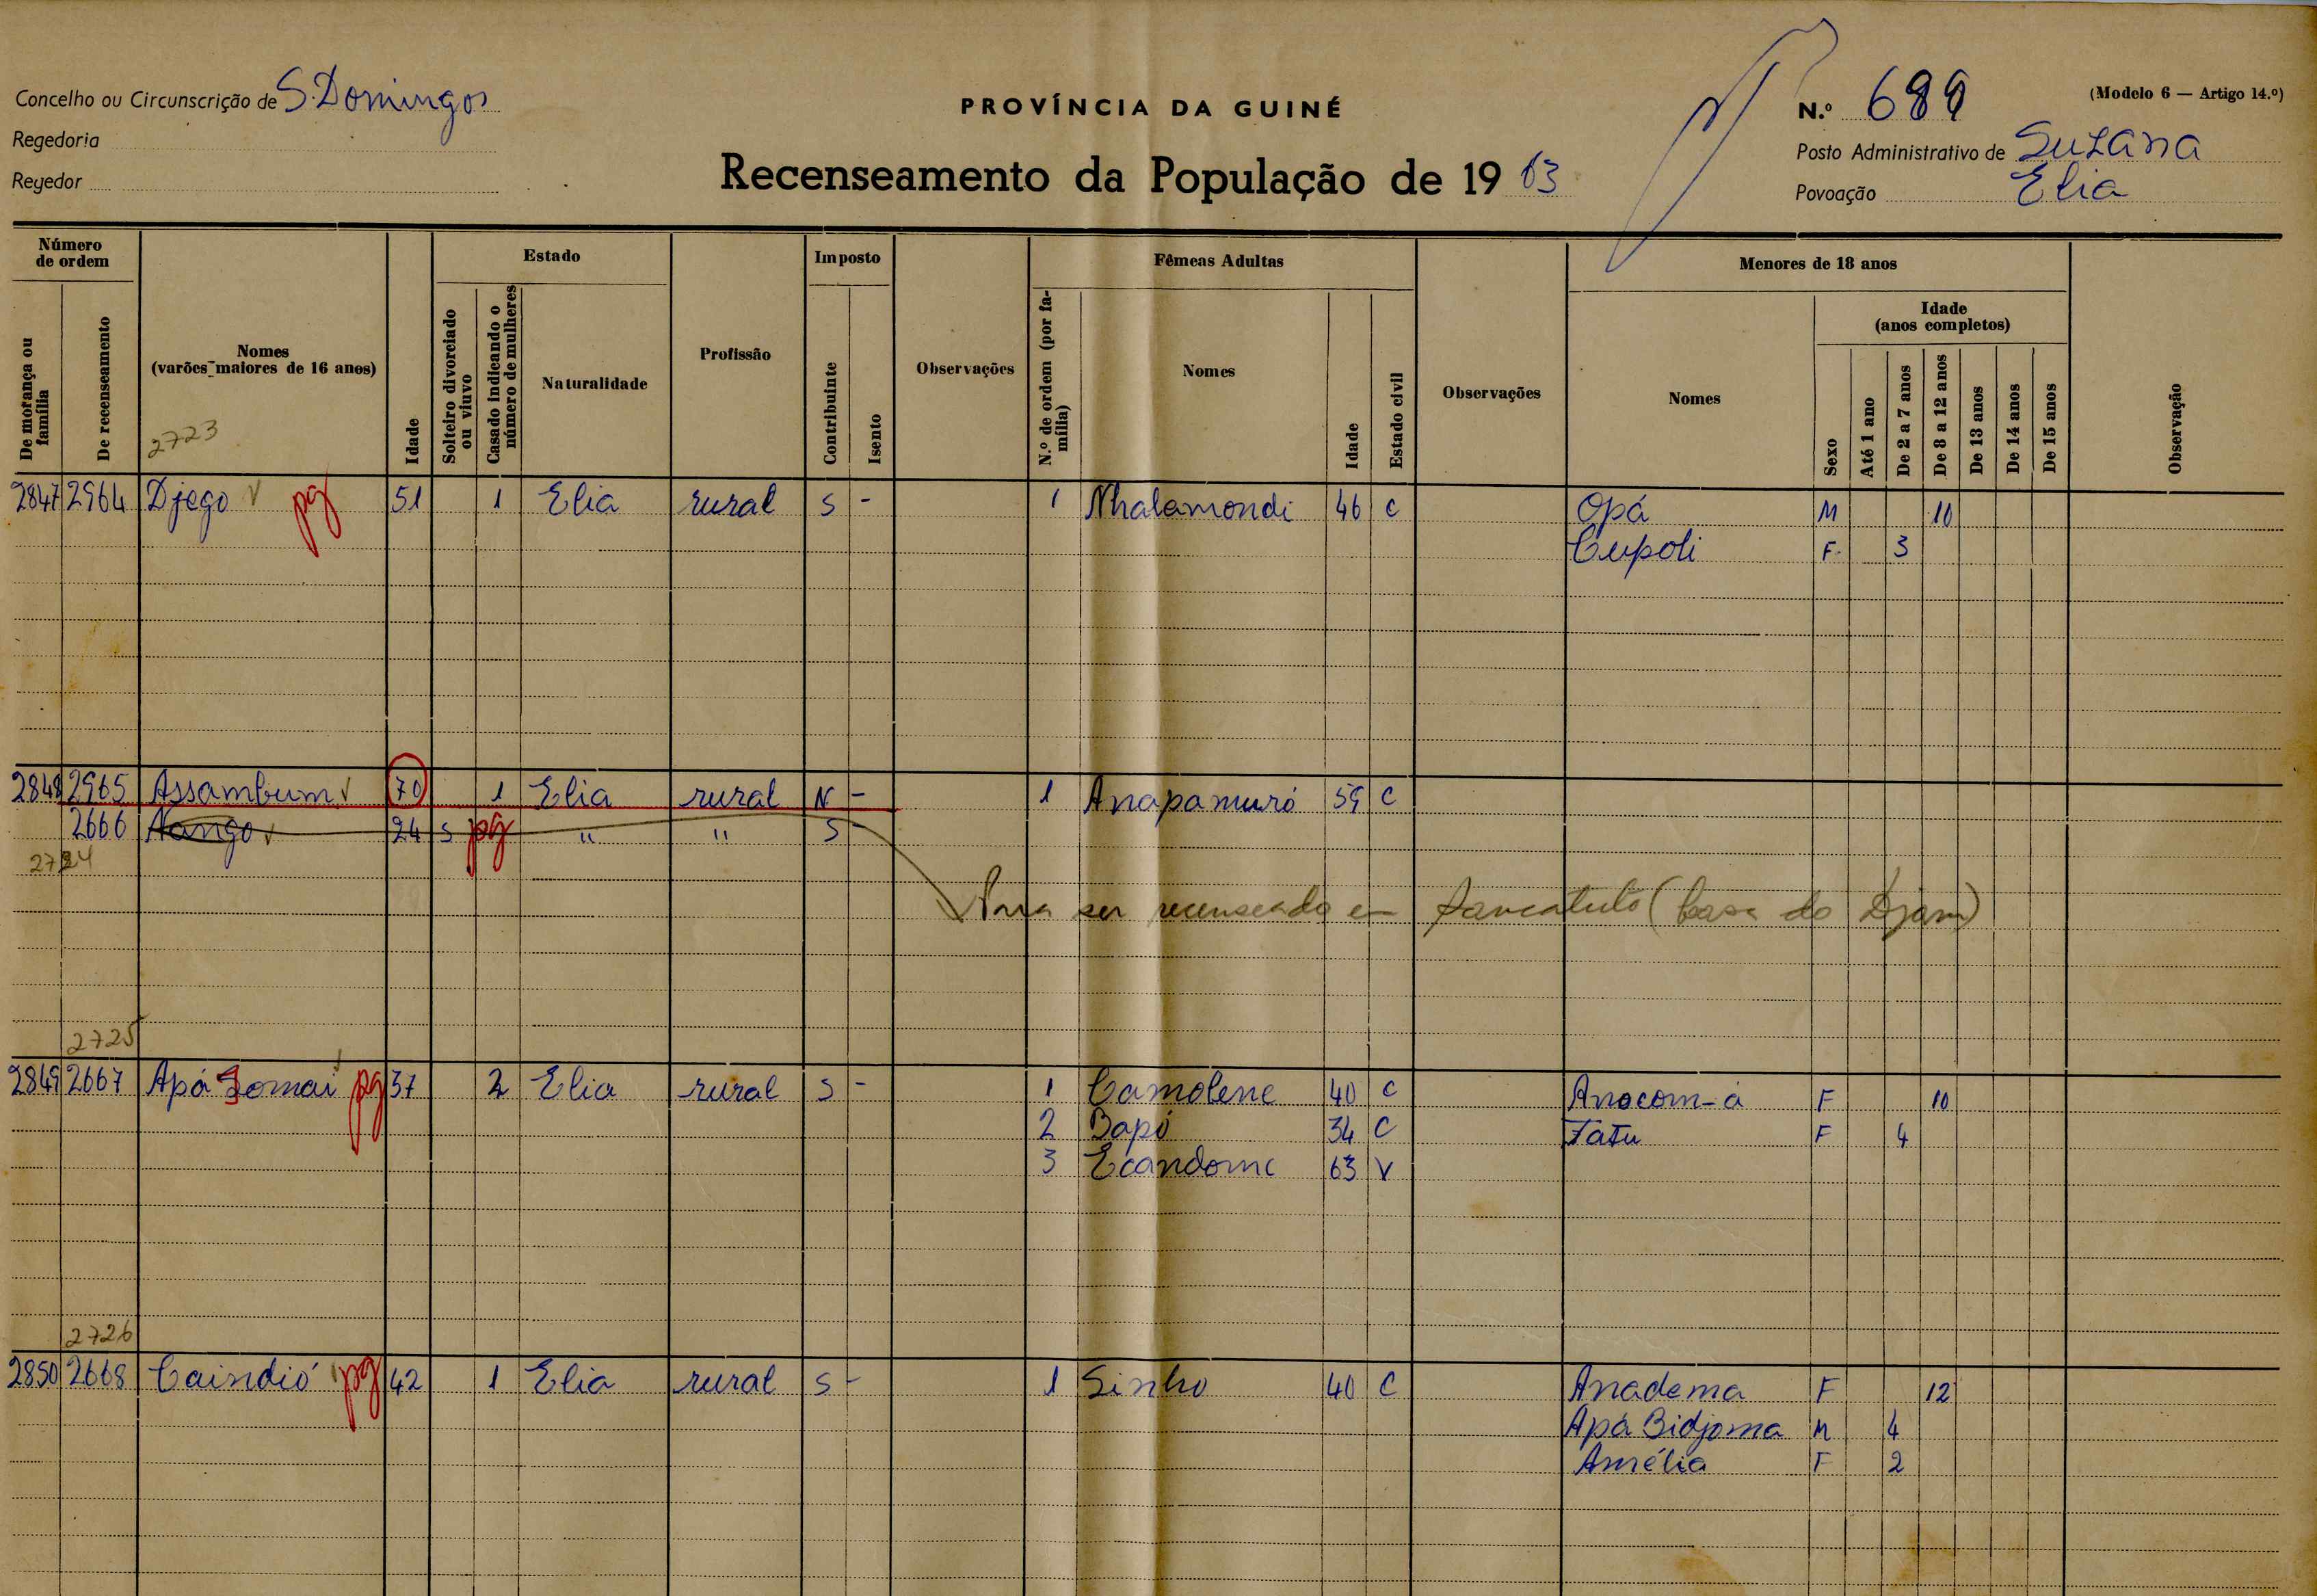 Concelho ou Circunscrição de S. Domingos
Regedoria
Regedor
PROVÍNCIA DA GUINÉ
Recenseamento da População de 1963
(Modelo 6 — Artigo 14.º)
N.º 689
Posto Administrativo de Suzana
Povoação Elia
Número de ordem
De morança ou família
De recenseamento
Nomes
(varões maiores de 16 anos)
2723
Idade
Estado
Solteiro divorciado ou viuvo
Casado indicando o número de mulheres
Naturalidade
Profissão
Imposto
Contribuinte
Isento
Observações
Fêmeas Adultas
N.º de ordem (por família)
Nomes
Idade
Estado civil
Observações
Menores de 18 anos
Nomes
Sexo
Idade
(anos completos)
Até 1 ano
De 2 a 7 anos
De 8 a 12 anos
De 13 anos
De 14 anos
De 15 anos
Observação
2847 2964 Djego pg 51 1 Elia rural S - 1 Nhalamondi 46 C Opá M 10
Cupoli F. 3
2848 2965 Assambum 70 1 Elia rural N - 1 Anapamuró 59 C
2666 Nango 24 S pg " " S -
2724
Para ser recenseado em (casa do Djam)
2725
2849 2667 Apá Somai pg 37 2 Elia rural S - 1 Camolene 40 C Anocom-á F 10
2 Bapó 34 C Fatu F 4
3 Ecandome 63 V
2726
2850 2668 Caindió pg 42 1 Elia rural S - 1 Sinho 40 C Anadema F 12
Apá Bidjoma M 4
Amélia F 2